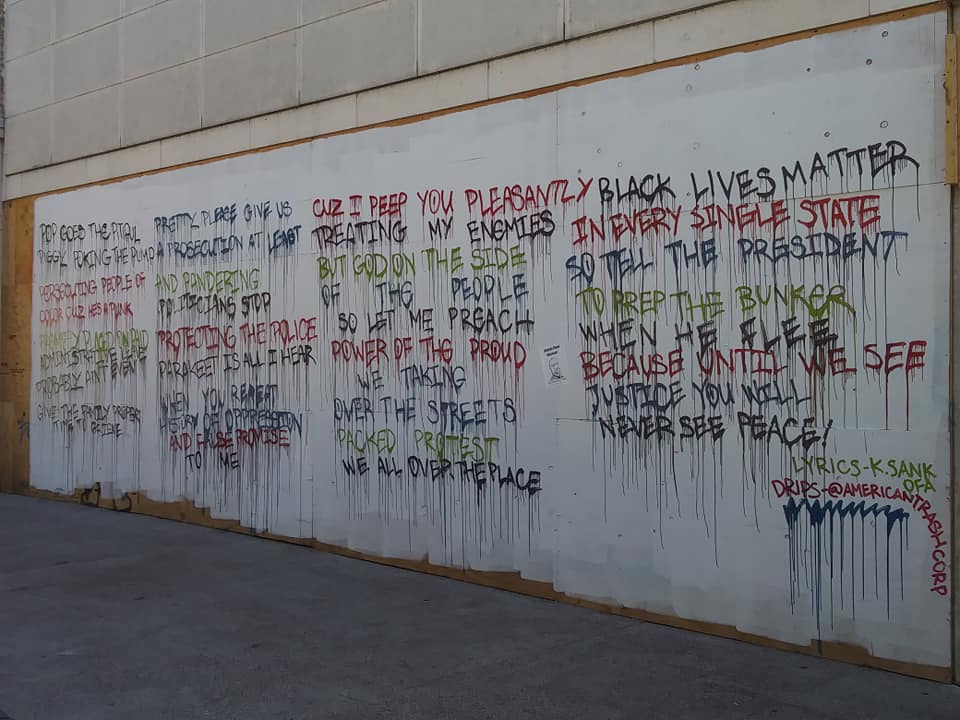 POP GOES THE PITAUL
PIGGY POKING THE PUMP
PERSECUTING PEOPLE OF
COLOR CUZ HES A PUNK
PLACED ON PAID
ADMINISTRATIVE LEAVE
PROBABLY AIN'T EVEN
GIVE THE FAMILY PROPER
TIME TO
PRETTY PLEASE GIVE US
A PROSECUTION AT LEAST
AND PANDERING
POLITICIANS STOP
PROTECTING THE POLICE
PARAKEET IS ALL I HEAR
WHEN YOU REPEAT
HISTORY OF OPPRESSION
AND FALSE PROMISE
TO ME
CUZ I PEEP YOU PLEASANTLY
TREATING MY ENEMIES
BUT GOD ON THE SIDE
OF THE PEOPLE
SO LET ME PREACH
POWER OF THE PROUD
WE TAKING
OVER THE STREETS
PACKED PROTEST
WE ALL OVER THE PLACE
BLACK LIVES MATTER
IN EVERY SINGLE STATE
SO TELL THE PRESIDENT
TO PREP THE BUNKER
WHEN HE FLEE
BECAUSE UNTIL WE SEE
JUSTICE YOU WILL
NEVER SEE PEACE!
LYRICS-K.SANK
OFA
DRIPS-@AMERICANTRASHCORP